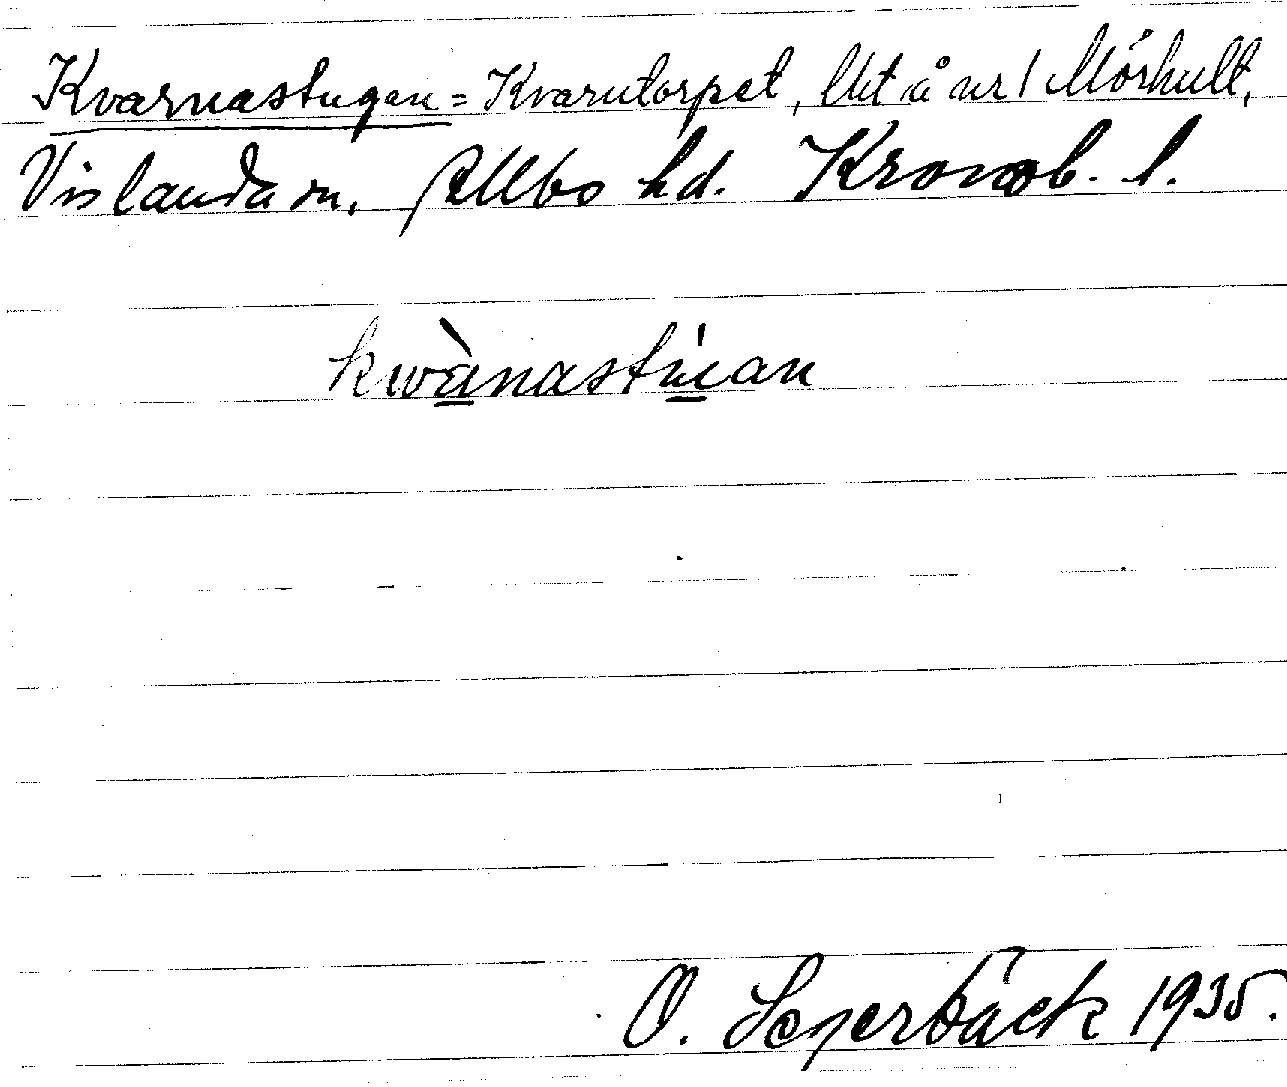 Kvarnastugan = Kvarntorpet, lht å nr 1 Mörhult,
Vislanda sn, Allbo hd. Kronob. l.
kwànastúan
O. Segerbäck 1935.